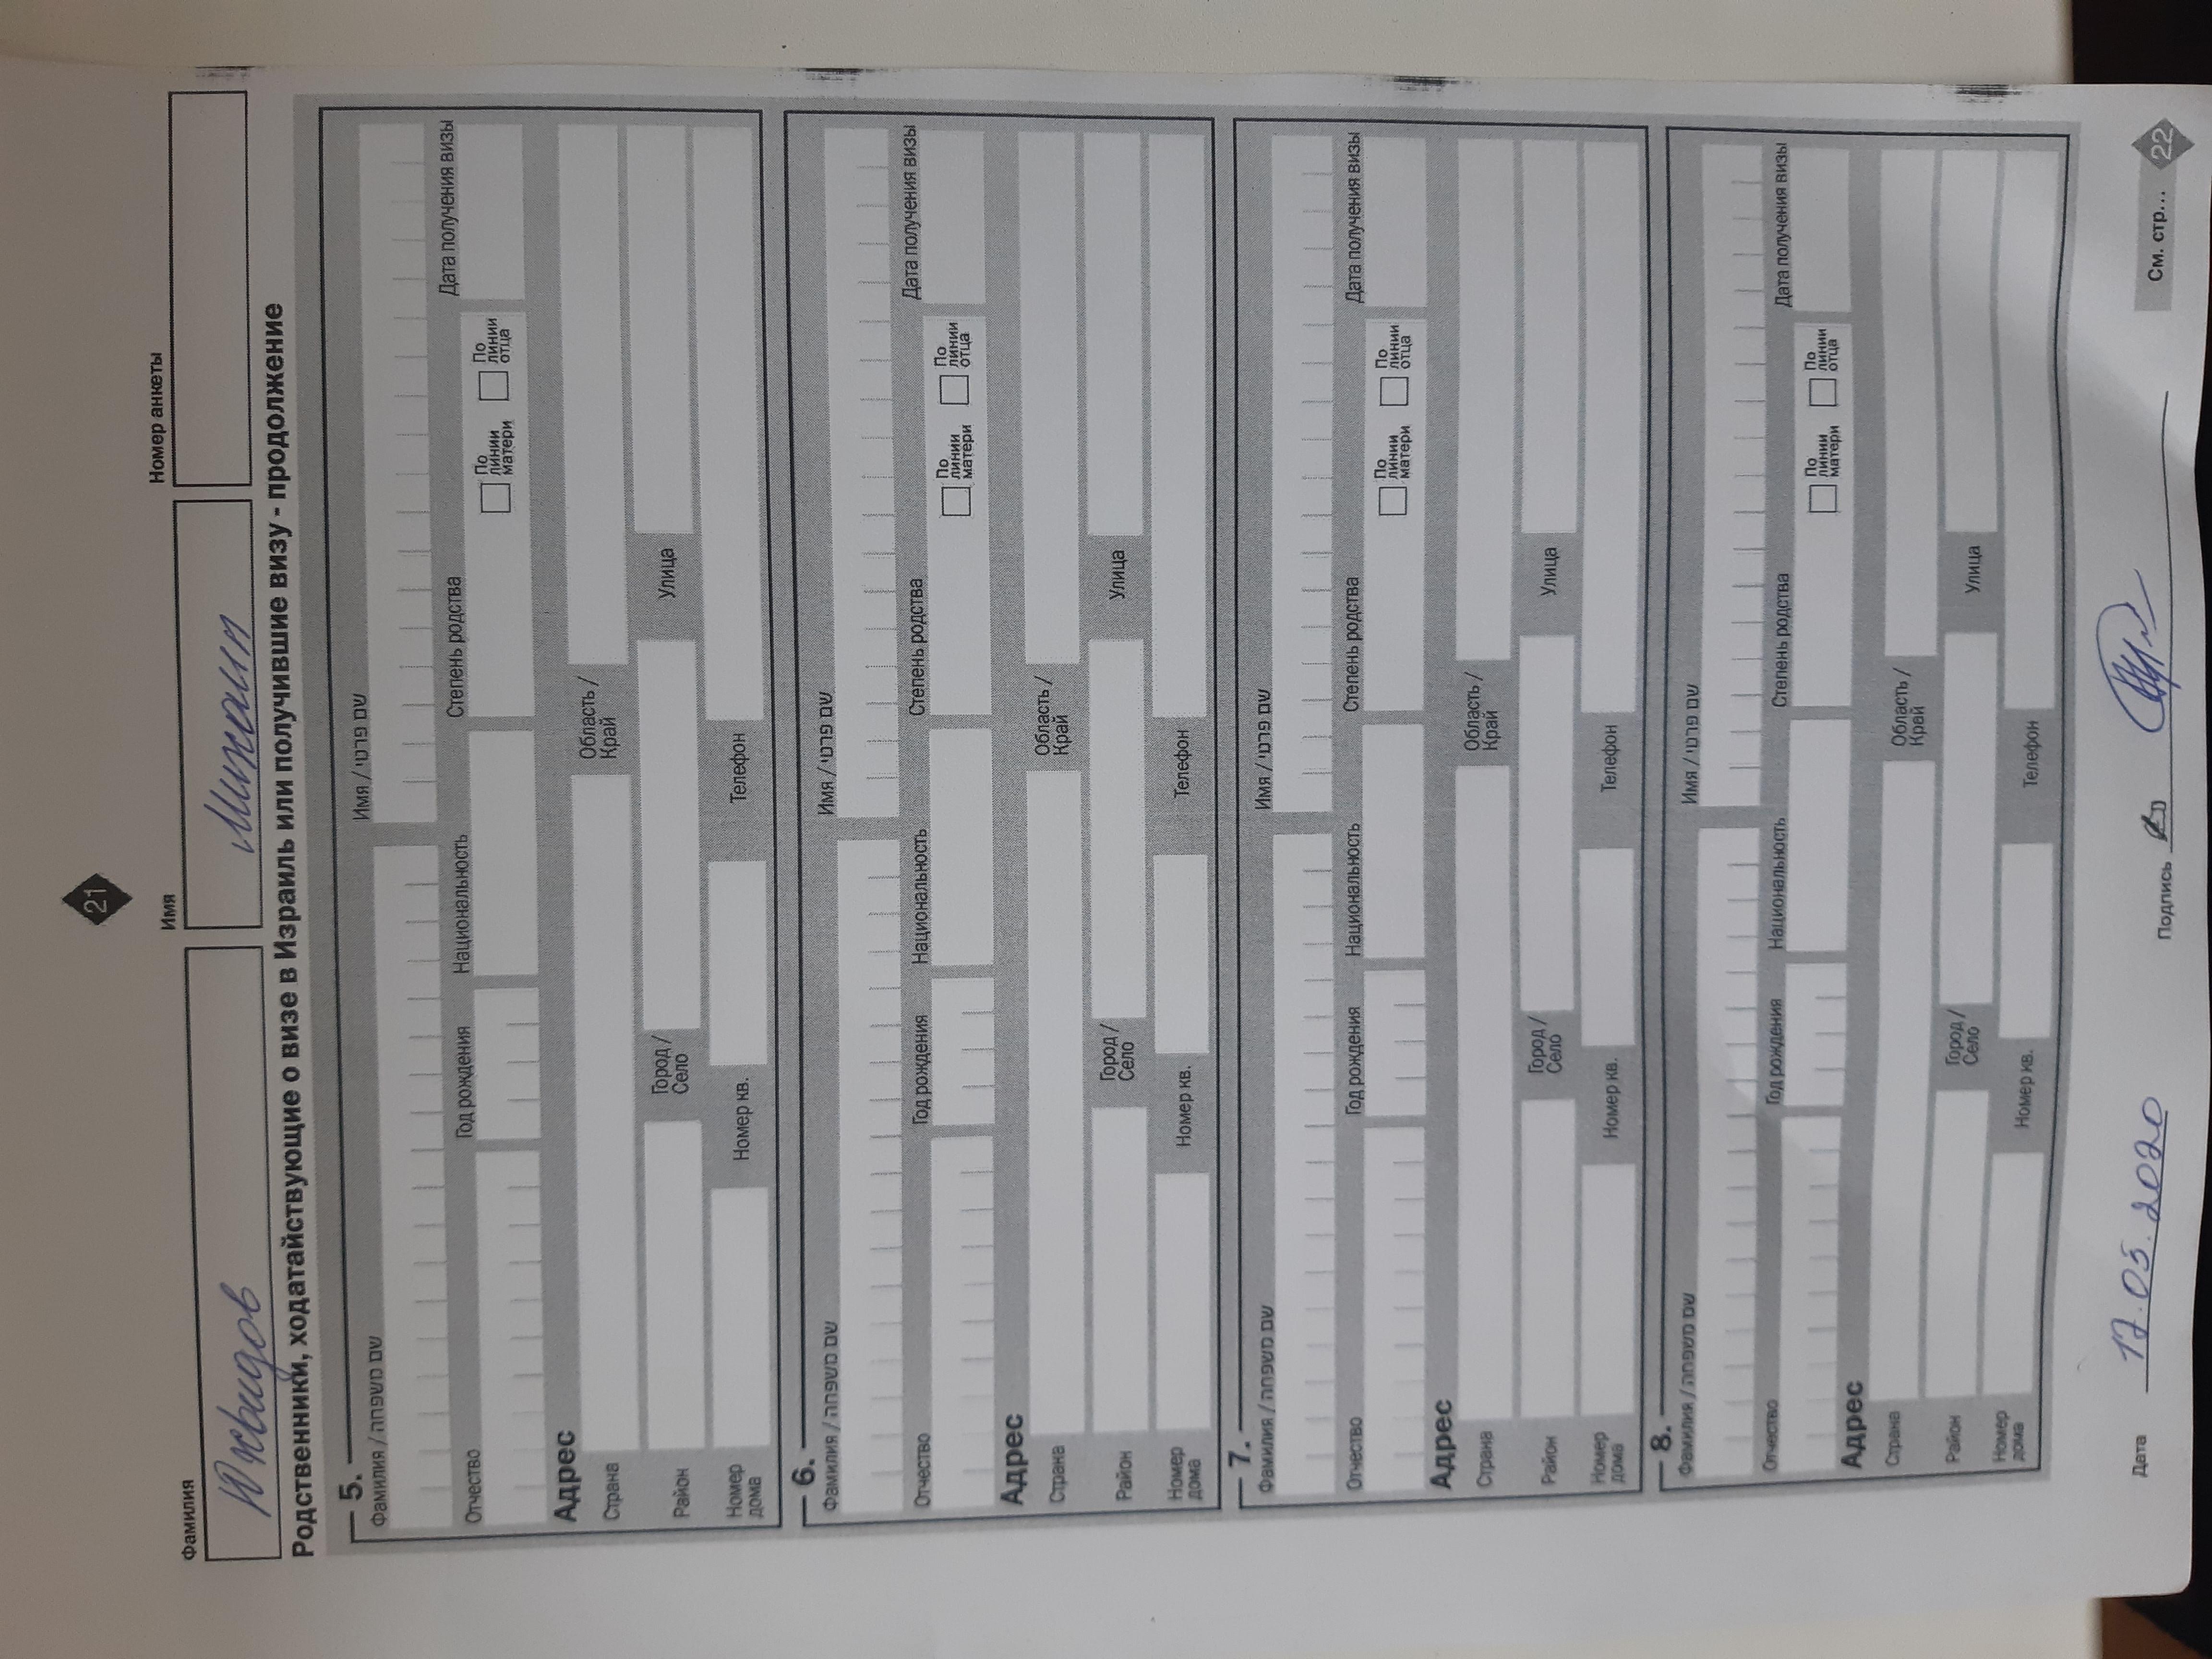 21
Фамилия Имя Номер анкеты
Юхвидов Михаил
Родственники, ходатайствующие о визе в Израиль или получившие визу - продолжение
5.
Фамилия / שם משפחה Имя / שם פרטי
Отчество Год рождения Национальность Степень родства По линии матери По линии отца Дата получения визы
Адрес
Страна Область / Край
Район Город / Село Улица
Номер дома Номер кв. Телефон
6.
Фамилия / שם משפחה Имя / שם פרטי
Отчество Год рождения Национальность Степень родства По линии матери По линии отца Дата получения визы
Адрес
Страна Область / Край
Район Город / Село Улица
Номер дома Номер кв. Телефон
7.
Фамилия / שם משפחה Имя / שם פרטי
Отчество Год рождения Национальность Степень родства По линии матери По линии отца Дата получения визы
Адрес
Страна Область / Край
Район Город / Село Улица
Номер дома Номер кв. Телефон
8.
Фамилия / שם משפחה Имя / שם פרטי
Отчество Год рождения Национальность Степень родства По линии матери По линии отца Дата получения визы
Адрес
Страна Область / Край
Район Город / Село Улица
Номер дома Номер кв. Телефон
Дата 17.05.2020 Подпись См. стр... 22